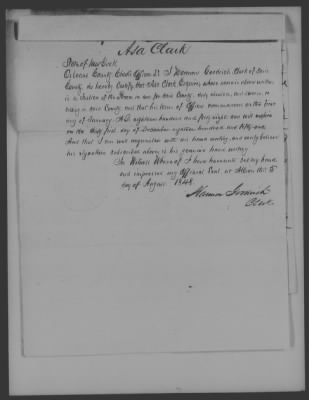 Asa Clark
State of New York
Orleans County Clerks Office SS. I Herman Goodrich Clerk of said
County, do hereby Certify that Asa Clark Esquire, whose name is above written
is a Justice of the Peace in and for said County, duly elected, and sworn, re
siding in said County and that his term of Office commenced on the first
day of January AD eighteen hundred and forty eight and will expire
on the thirty first day of December eighteen hundred and fifty one
And that I am well acquainted with his hand writing, and verily believe
his signature subscribed above is his genuine hand writing
In Witness Whereof I have hereunto set my hand
and impressed my Official Seal at Albion this 5
day of August 1848
Goodrich
Clerk